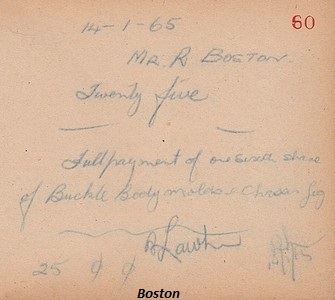 14-1-65
60
MR R BOSTON.
Twenty five
Full payment of one sixth share
of Buckle Body molds & Chassis Jig
25 0 0
Boston